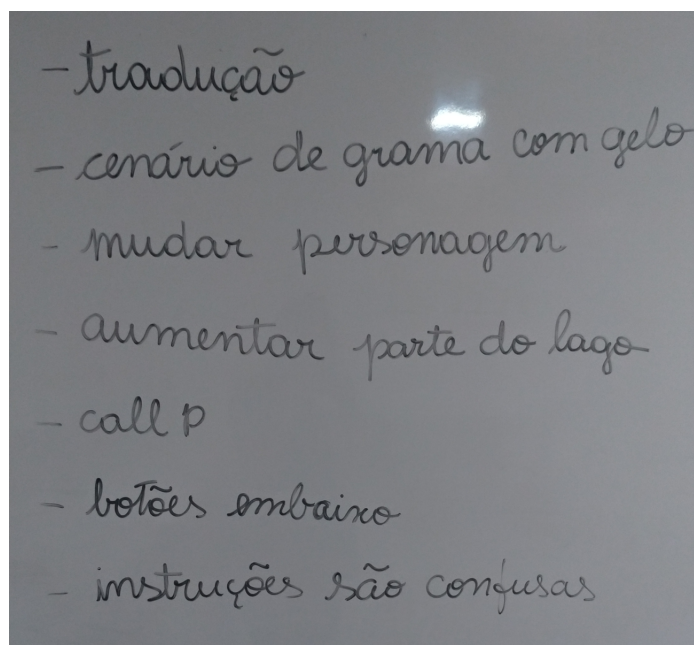 - tradução
- cenário de grama com gelo
- mudar personagem
- aumentar parte do lago
- call p
- botões embaixo
- instruções são confusas